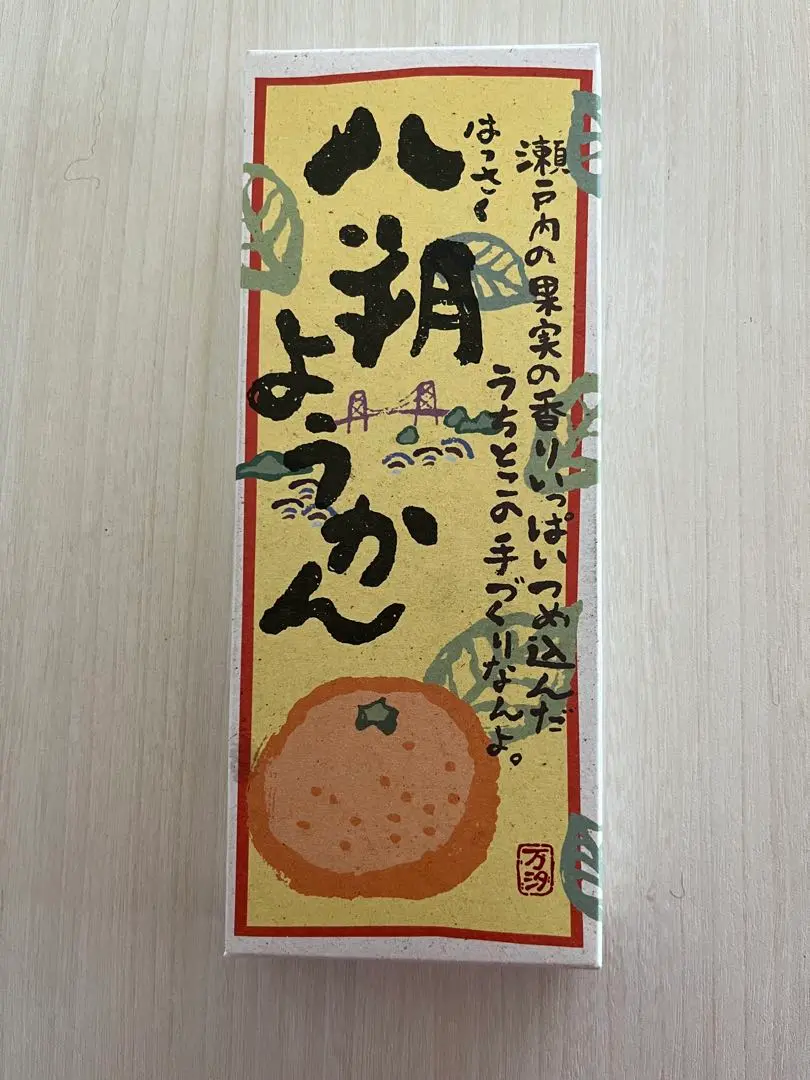 瀬戸内の果実の香りいっぱいつめ込んだ
うちとこの手づくりなんよ。
はっさく
八朔
ようかん
万汐